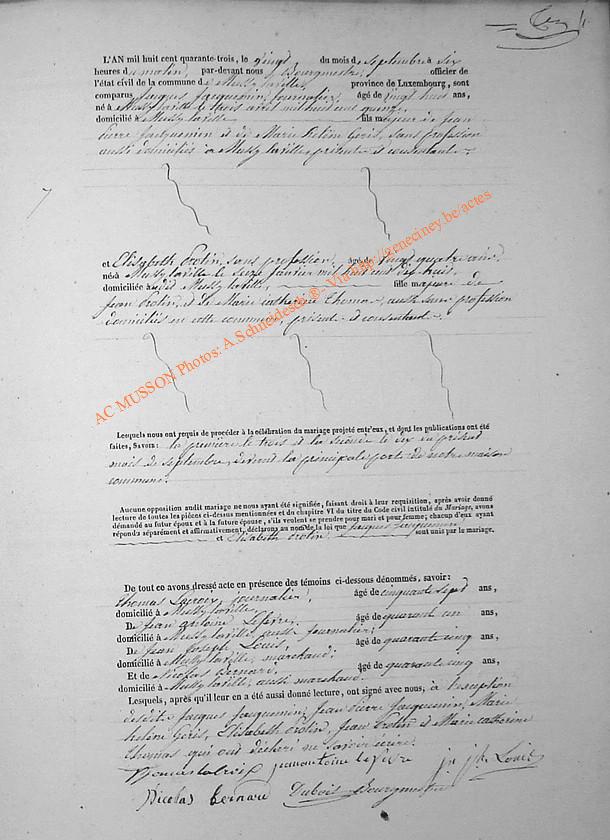 L'AN mil huit cent quarante-trois, le vingt du mois de septembre à six
heures du matin, par-devant nous Bourgmestre, officier de
l'état civil de la commune de Mussy laville, province de Luxembourg, sont
comparus Jacques Jacquemin, journalier, âgé de vingt huit ans,
né à Mussy laville le trois avril mil huit cent quinze,
domicilié à Mussy laville fils majeur de Jean
Pierre Jacquemin et de Marie helène Geris, sans profession
aussi domiciliés à Mussy laville, présents et consentants.
et Elisabeth Protin, sans profession, âgée de vingt quatre ans.
née à Mussy laville le seize février mil huit cent dix huit,
domiciliée à dit Mussy laville, fille majeure de
Jean Protin, et de Marie catherine Thomas, aussi sans profession
domiciliés en cette commune, présents et consentants.
AC MUSSON Photos: A.Schneidesch ®- Via http://geneciney.be/actes
Lesquels nous ont requis de procéder à la célébration du mariage projeté entr'eux, et dont les publications ont été
faites, Savoir: la première le trois et la seconde le dix du présent
mois de septembre, devant la principale porte de notre maison
commune.
Aucune opposition audit mariage ne nous ayant été signifiée, faisant droit à leur requisition, après avoir donné
lecture de toutes les pièces ci-dessus mentionnées et du chapitre VI du titre du Code civil intitulé du Mariage, avons
démandé au futur époux et à la future épouse, s'ils veulent se prendre pour mari et pour femme; chacun d'eux ayant
répondu séparément et affirmativement, déclarons au nom de la loi que Jacques Jacquemin
et Elisabeth Protin sont unis par le mariage.
De tout ce avons dressé acte en présence des témoins ci-dessous dénommés, savoir:
Thomas Lacroix, journalier, âgé de cinquante sept ans,
domicilié à Mussy laville.
De Jean antoine Lefevre, âgé de quarant un ans,
domicilié à Mussy laville aussi journalier;
De Jean Joseph Louis, âgé de quarante cinq ans,
domicilié à Mussy laville, marchand:
Et de Nicolas Bernard, âgé de quarante cinq ans,
domicilié à Mussy laville, aussi marchand.
Lesquels, après qu'il leur en a été aussi donné lecture, ont signé avec nous, à l'exception
desdits Jacques Jacquemin, Jean Pierre Jacquemin, Marie
helène Geris, Elisabeth Protin, Jean Protin et Marie catherine
Thomas qui ont déclaré ne savoir écrire.
Thomas Lacroix jean antoine lefevre jn jh Louis
Nicolas Bernard Dubois Bourgmestre